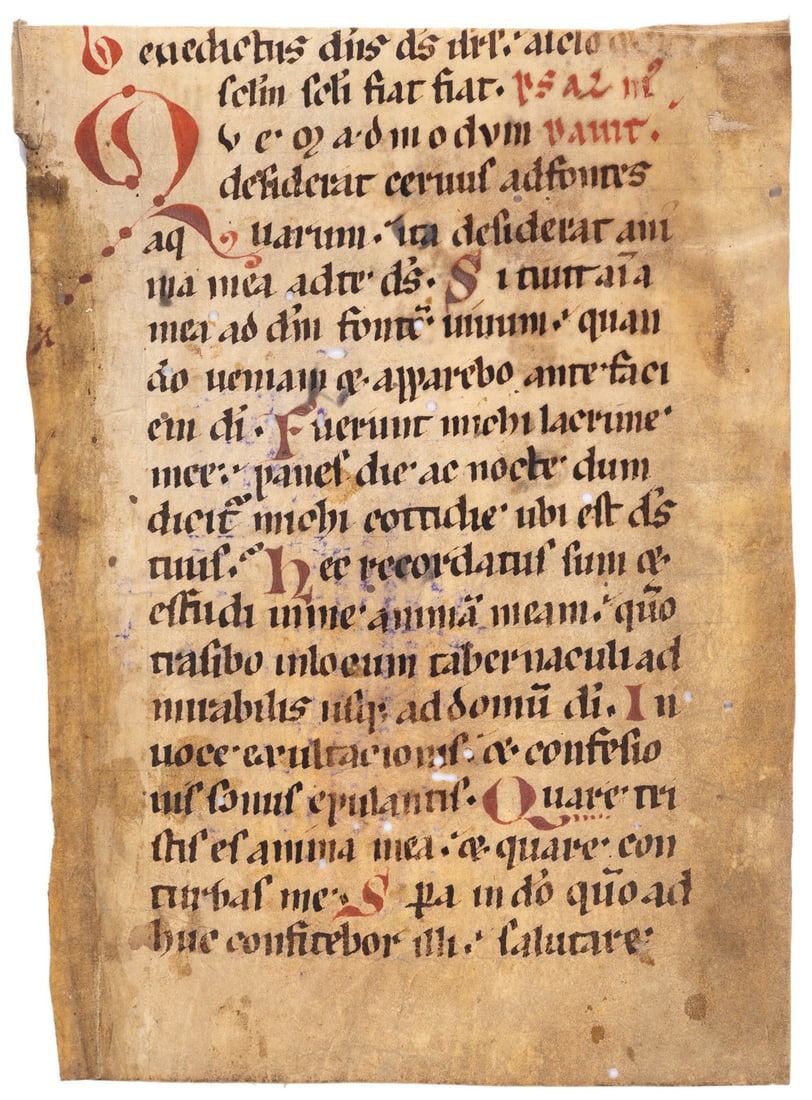 Benedictus dn̄s ds̄ isrl̄. a seculo
sclm̄ scli̅ fiat fiat. psalm̄ꝰ
Quemadmodvm david.
desiderat ceruus ad fontes
aquarum. ita desiderat ani
ma mea ad te ds̄. Sitiuit aīa
mea ad dm̄ fontē uiuum. quan
do ueniam ⁊ apparebo ante faci
em di̅. Fuerunt michi lacrime
mee. panes die ac nocte dum
dicit᷑ michi cottidie ubi est ds̄
tuus. Hec recordatus sum ⁊
effudi in me animā meam. qūo
trāsibo in locum tabernaculi ad
mirabilis usqꝫ ad domū di̅. In
uoce exultacionis ⁊ confesio
nis sonus epulantis. Quare tri
stis es anima mea. ⁊ quare con
turbas me. Spa in dō qūo ad
huc confitebor illi. salutare